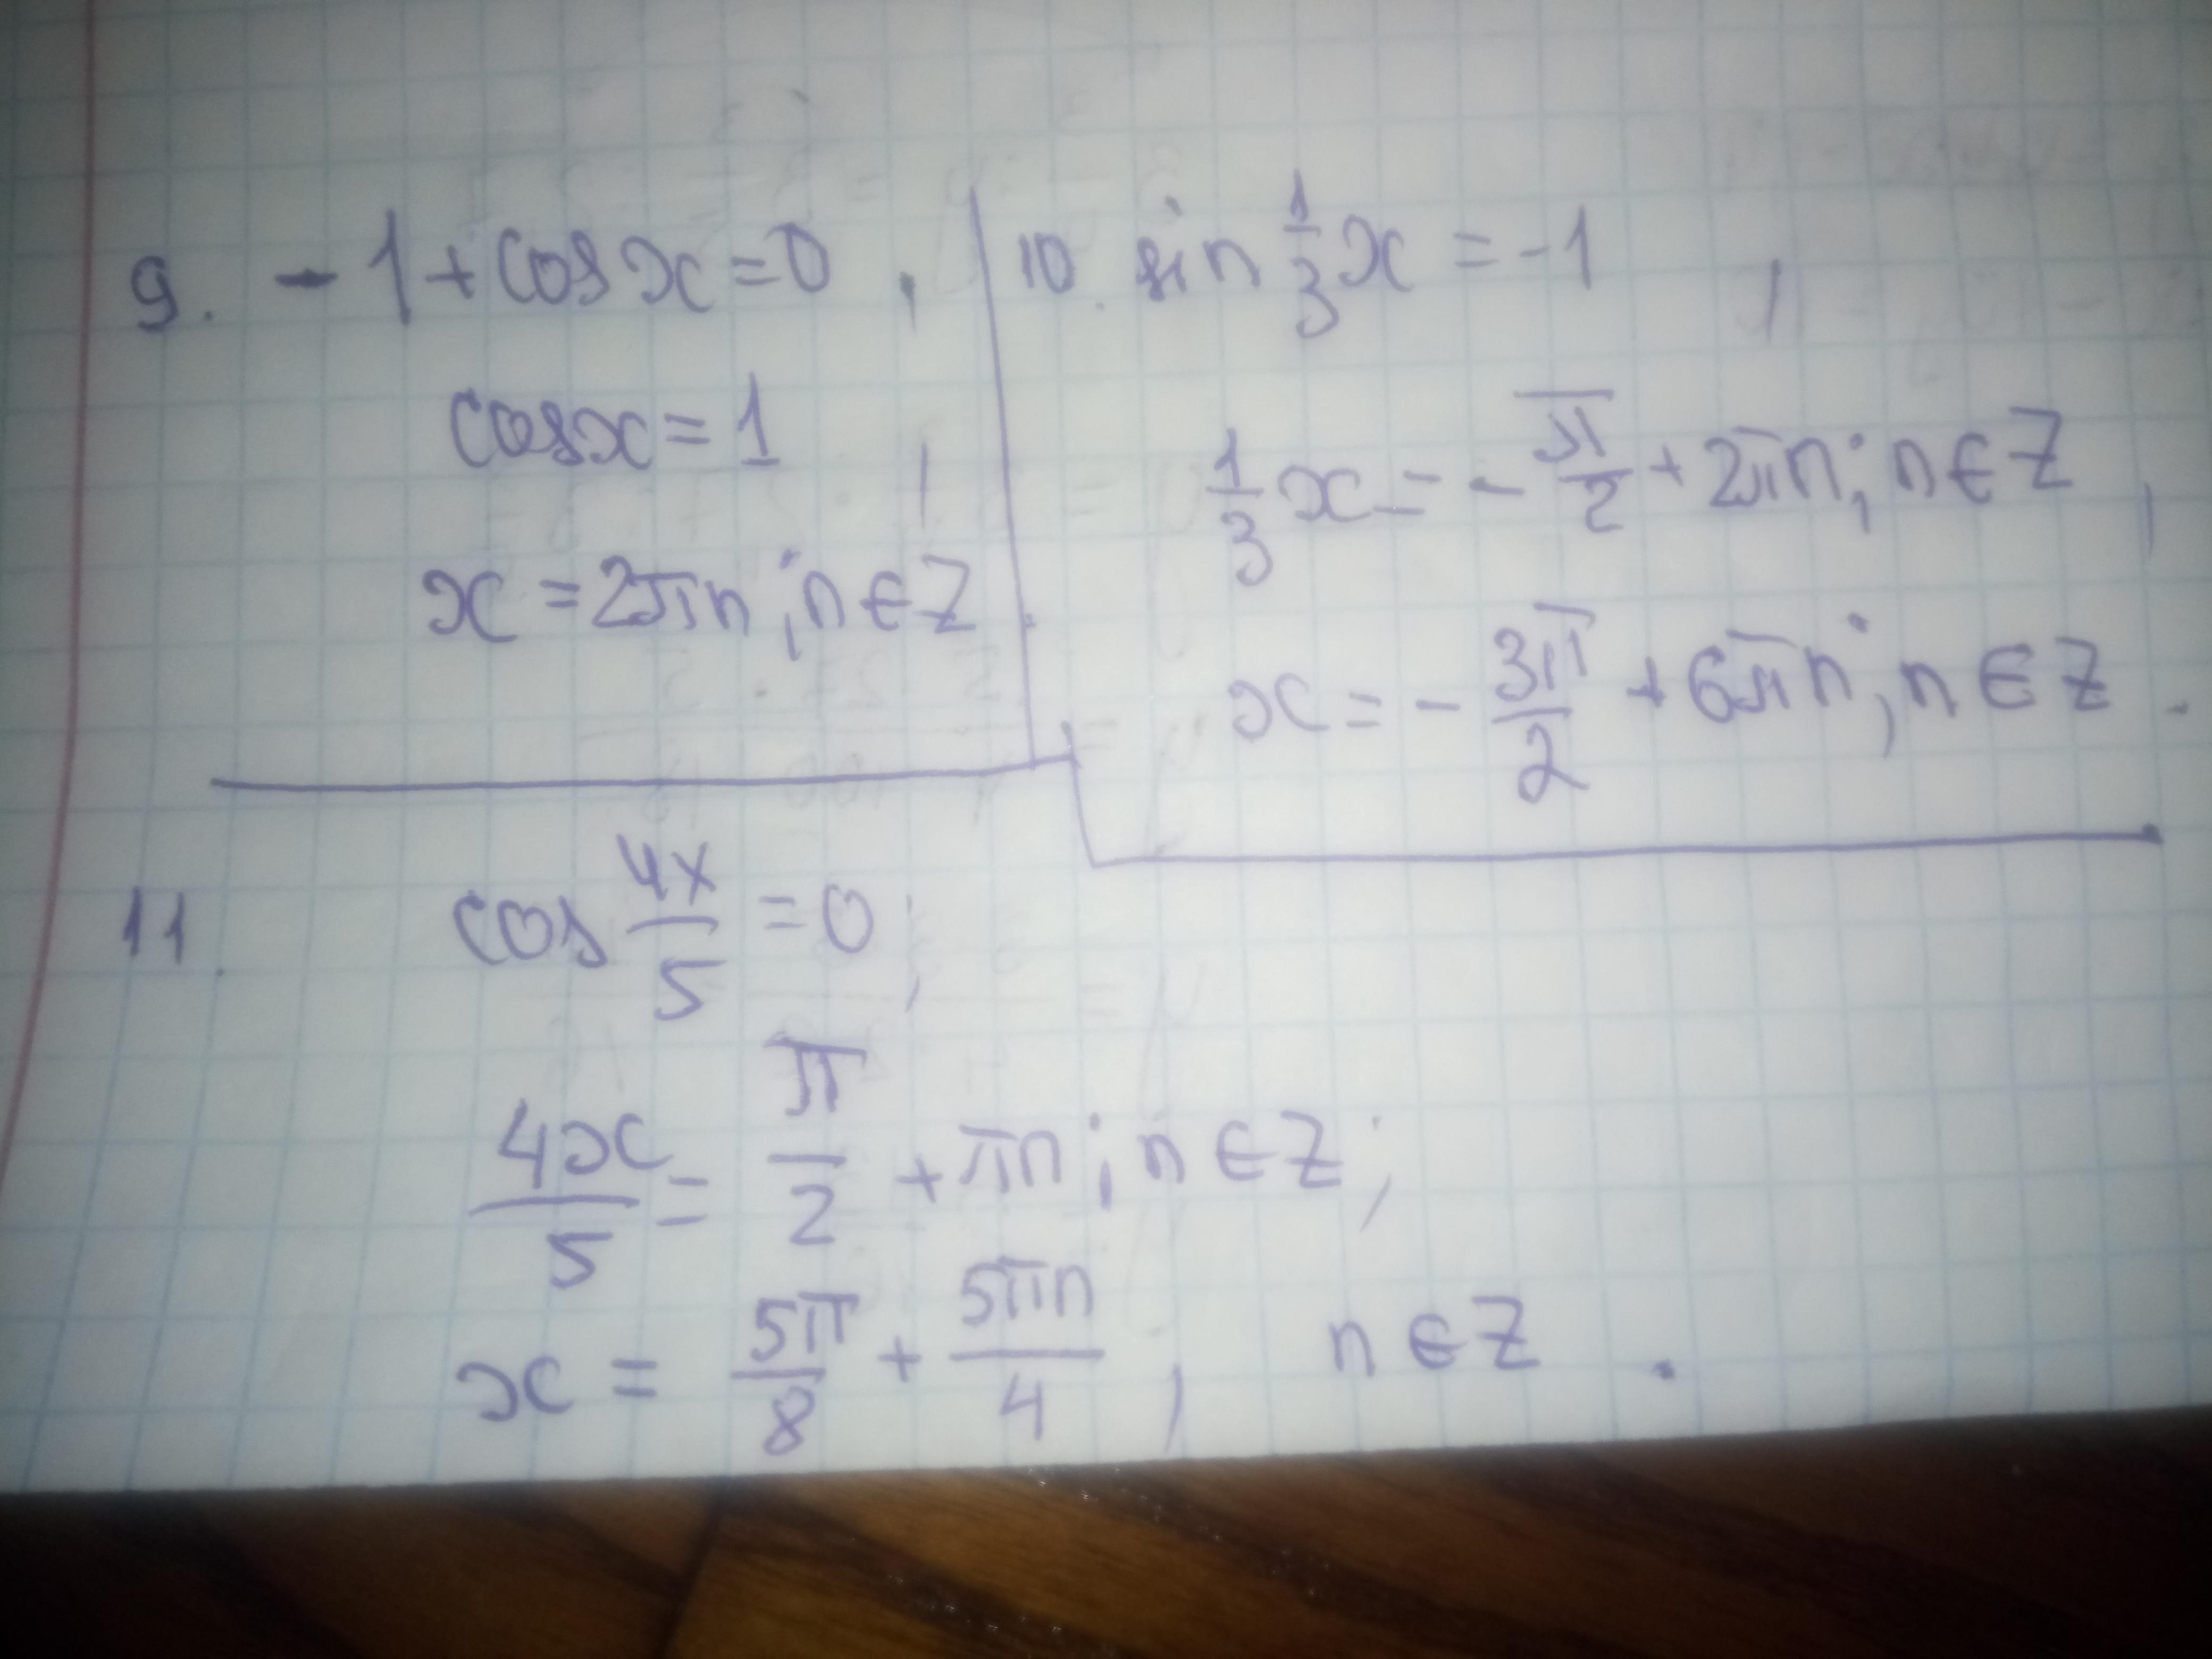 9. -1+cosx=0,
cosx=1
x=2πn; n∈Z.
10. sin 1/3 x = -1,
1/3 x = - π/2 + 2πn; n∈Z,
x = - 3π/2 + 6πn; n∈Z.
11. cos 4x/5 = 0;
4x/5 = π/2 + πn; n∈Z;
x = 5π/8 + 5πn/4, n∈Z.